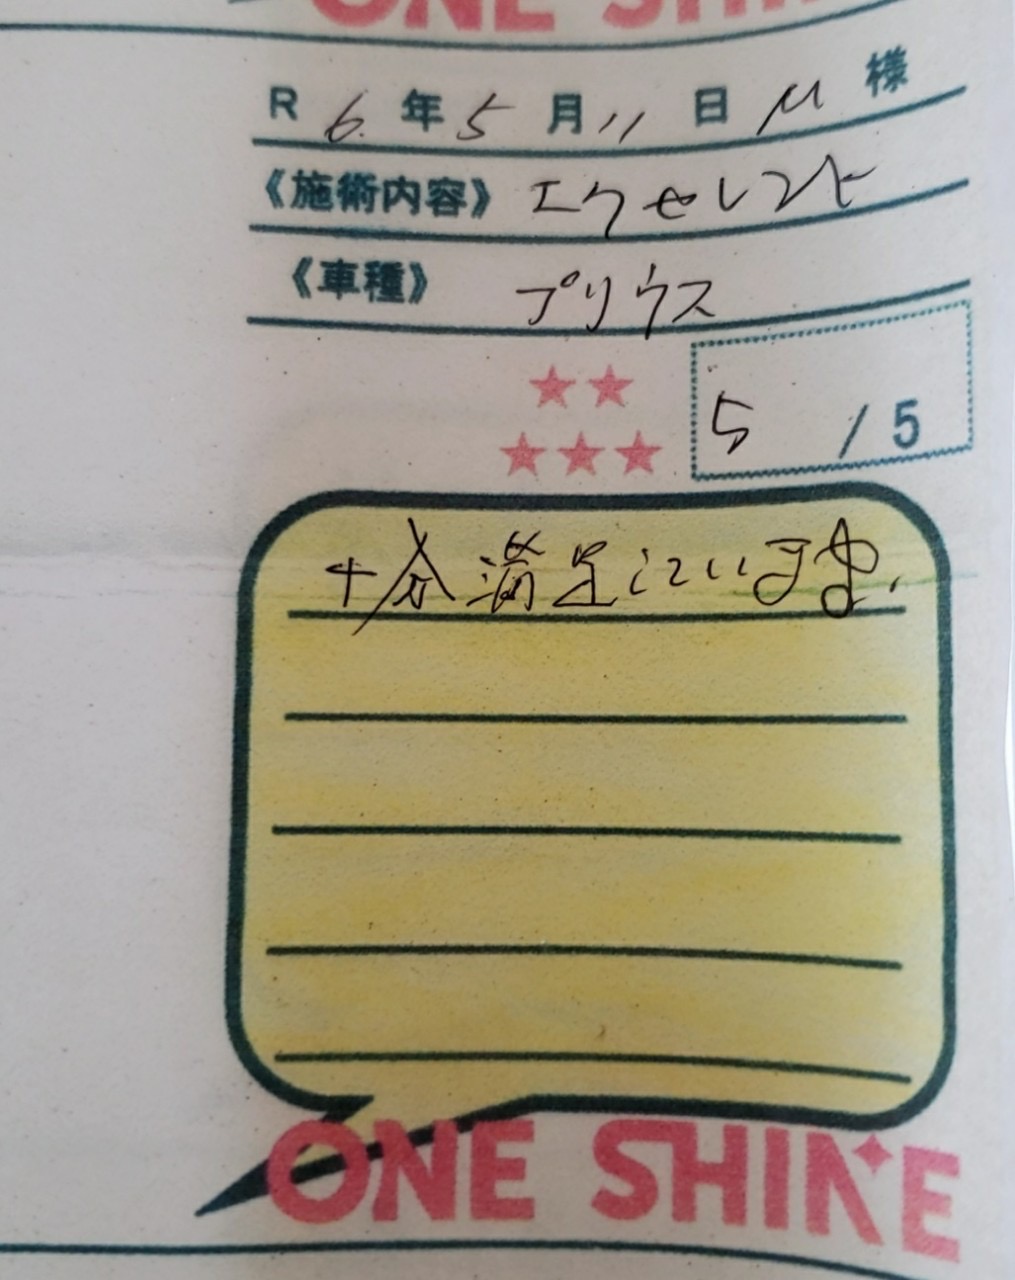 ONE SHINE
R 6年5月11日 M 様
《施術内容》 エクセレント
《車種》 プリウス
5 / 5
十分満足しています.
ONE SHINE